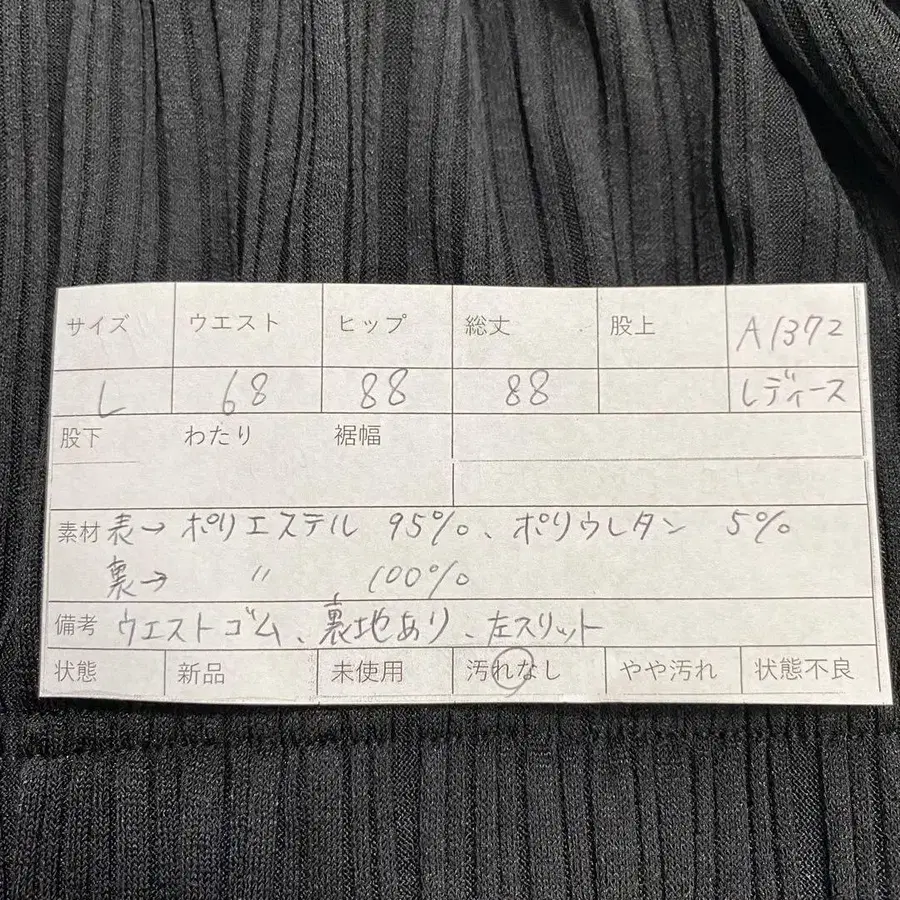 サイズ ウエスト ヒップ 総丈 股上 A1372
L 68 88 88 レディース
股下 わたり 裾幅
素材 表→ ポリエステル 95%、ポリウレタン 5%
裏→ 〃 100%
備考 ウエストゴム、裏地あり、左スリット
状態 新品 未使用 汚れなし やや汚れ 状態不良